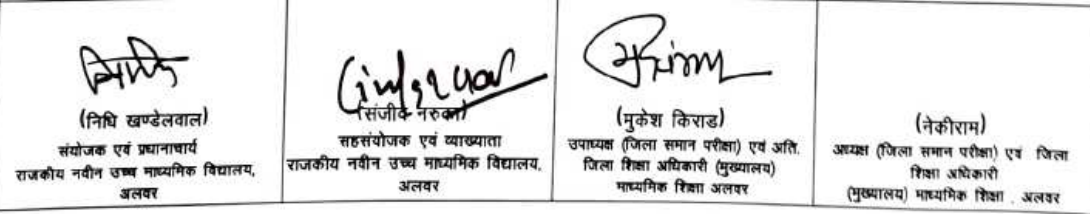 (निधि खण्डेलवाल)
संयोजक एवं प्रधानाचार्य
राजकीय नवीन उच्च माध्यमिक विद्यालय,
अलवर
(संजीव नरुका)
सहसंयोजक एवं व्याख्याता
राजकीय नवीन उच्च माध्यमिक विद्यालय,
अलवर
(मुकेश किराड)
उपाध्यक्ष (जिला समान परीक्षा) एवं अति.
जिला शिक्षा अधिकारी (मुख्यालय)
माध्यमिक शिक्षा अलवर
(नेकीराम)
अध्यक्ष (जिला समान परीक्षा) एवं जिला
शिक्षा अधिकारी
(मुख्यालय) माध्यमिक शिक्षा . अलवर